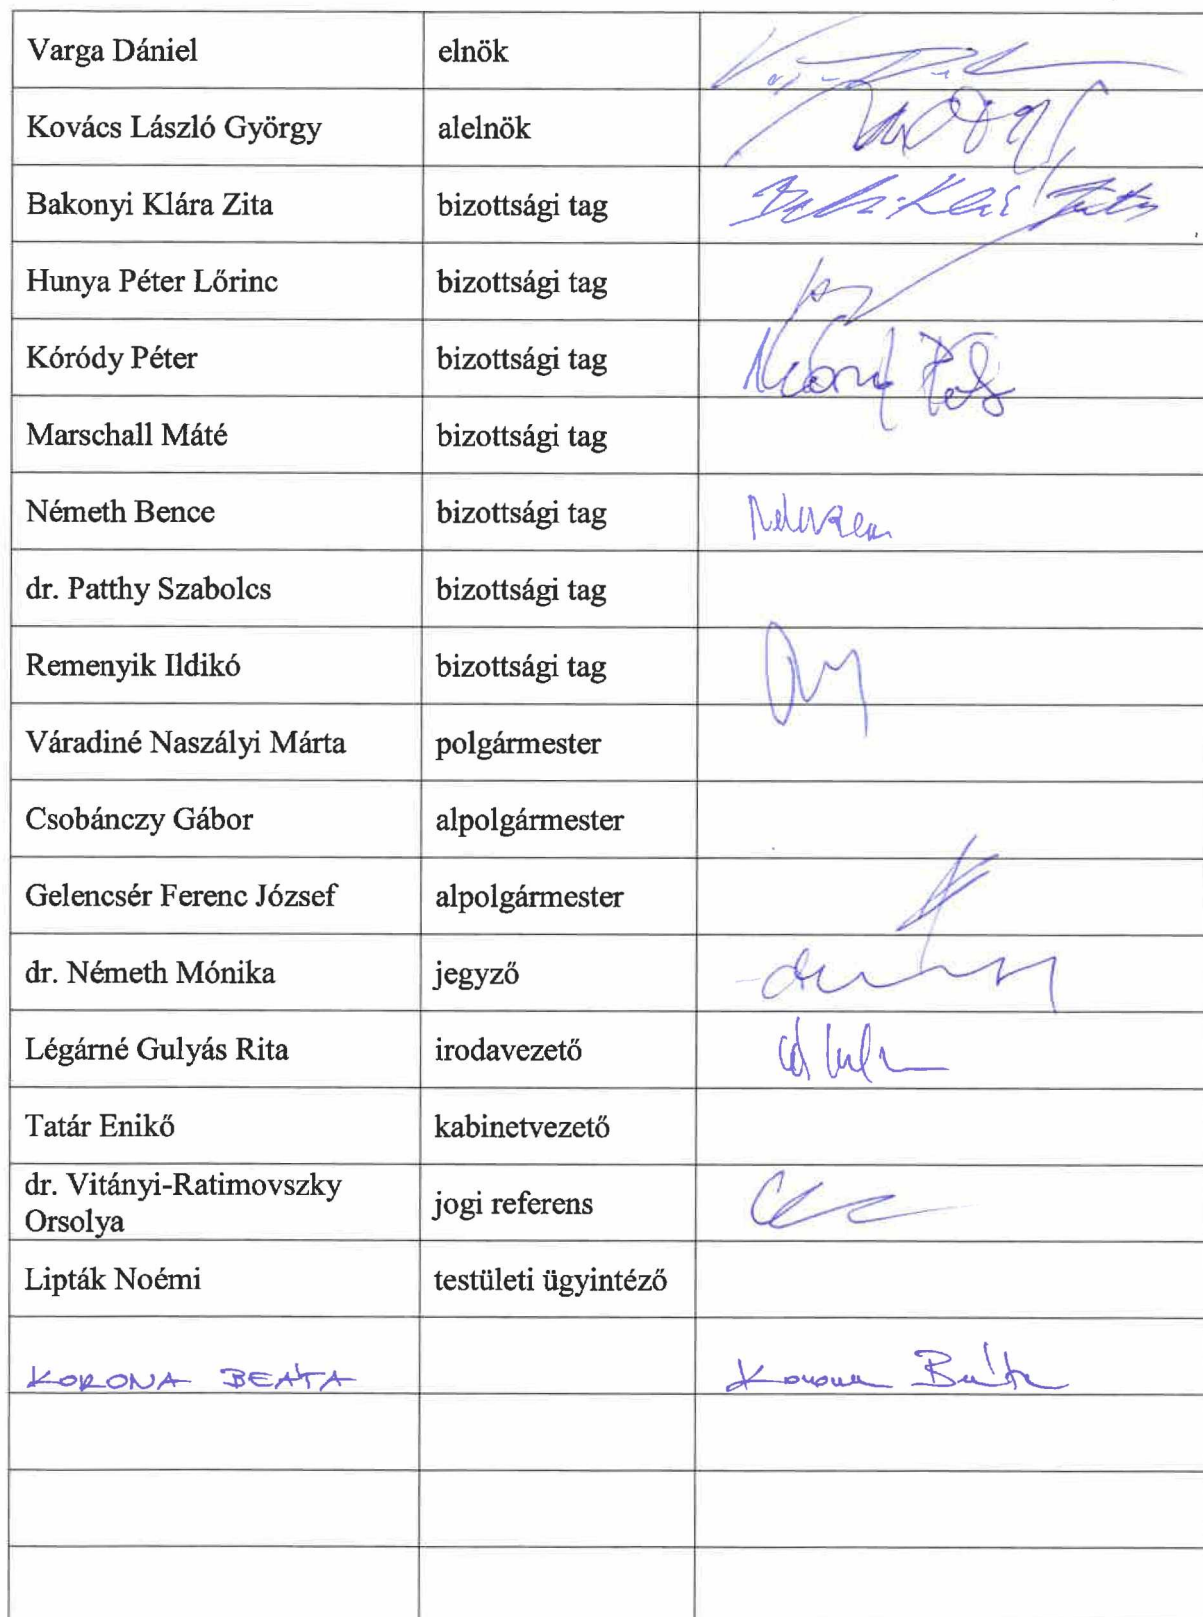 Varga Dániel elnök
Kovács László György alelnök
Bakonyi Klára Zita bizottsági tag
Hunya Péter Lőrinc bizottsági tag
Kóródy Péter bizottsági tag
Marschall Máté bizottsági tag
Németh Bence bizottsági tag
dr. Patthy Szabolcs bizottsági tag
Remenyik Ildikó bizottsági tag
Váradiné Naszályi Márta polgármester
Csobánczy Gábor alpolgármester
Gelencsér Ferenc József alpolgármester
dr. Németh Mónika jegyző
Légárné Gulyás Rita irodavezető
Tatár Enikő kabinetvezető
dr. Vitányi-Ratimovszky
Orsolya jogi referens
Lipták Noémi testületi ügyintéző
KORONA BEÁTA Korona Beáta